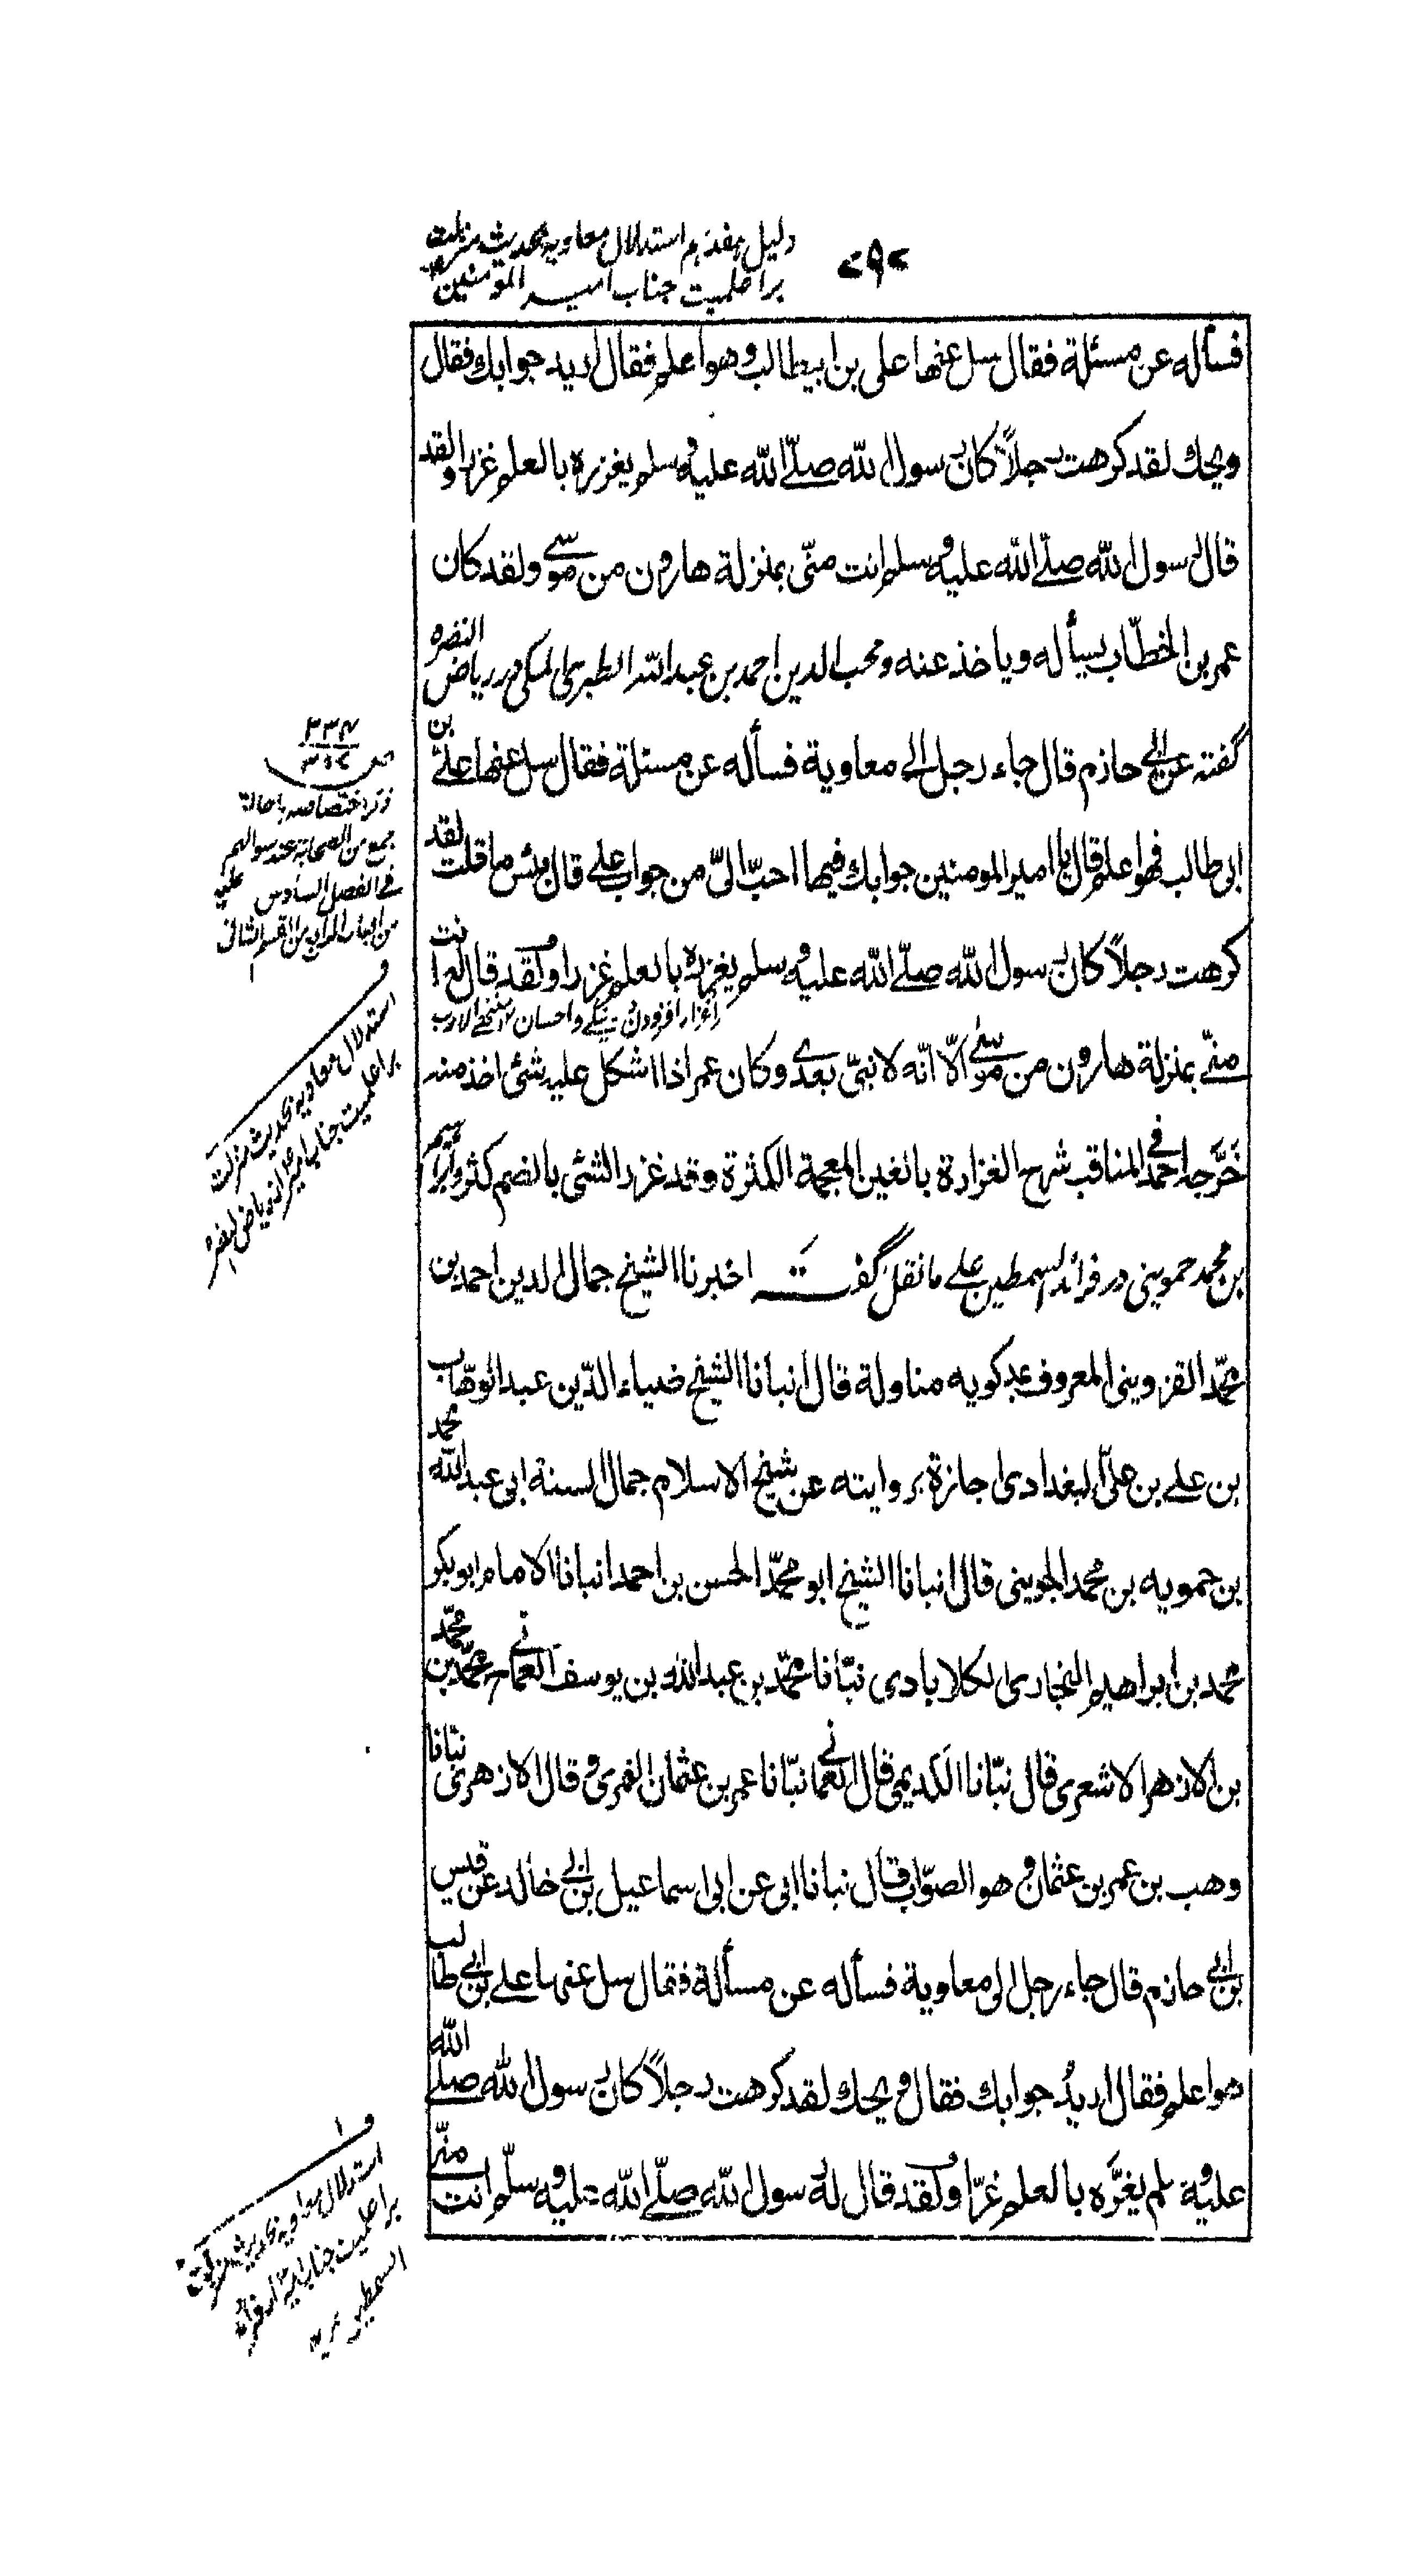 دلیل هفدهم استدلال معاویه بحدیث منزلت
بر اعلمیت جناب امیر المؤمنین
۷۹۷
فسأله عن مسئلة فقال سل عنها علی بن ابیطالب وهو اعلم فقال ارید جوابك فقال
ویحك لقد کرهت رجلاً کان رسول الله صلّی الله علیه و سلم یغزره بالعلم غزرا ولقد
قال رسول الله صلّی الله علیه و سلم انت منّی بمنزلة هارون من موسی ولقد کان
عمر بن الخطّاب یسأله ویاخذ عنه ومحب الدین احمد بن عبد الله الطبری المکی در ریاض النضره
گفته عن ابی حازم قال جاء رجل الی معاویة فسأله عن مسئلة فقال سل عنها علی بن
ابی طالب فهو اعلم قال یا امیر المومنین جوابك فیها احبّ الیّ من جواب علی قال بئس ما قلت لقد
کرهت رجلاً کان رسول الله صلّی الله علیه و سلم یغزره بالعلم غزرا ولقد قال له انت
اغزار افزودن نیکے واحسان ۱۲ منتهی الارب
منّی بمنزلة هارون من موسی الّا انّه لا نبیّ بعدی وکان عمر اذا اشکل علیه شئ اخذ منه
خَرَّجه احمد فی المناقب شرح الغزارة بالغین المعجمة الکثرة وقد غزر الشئ بالضم کثر وابراهیم
بن محمد حموینی در فرائد السمطین علی ما نقل گفته اخبرنا الشیخ جمال الدین احمد بن
محمّد القزوینی المعروف بمدکویه مناولة قال انبأنا الشیخ ضیاء الدّین عبد الوهّاب
بن علی بن علیّ البغدادی اجازة بروایته عن شیخ الاسلام جمال السنة ابی عبد الله محمد
بن حمویه بن محمد الجوینی قال انبانا الشیخ ابو محمّد الحسن بن احمد انبانا الامام ابو بکر
محمد بن ابراهیم البخاری الکلابادی نبّأنا محمّد بن عبد الله بن یوسف العمانی و محمّد بن محمّد
بن الازهر الاشعری قال نبّانا الکدیمی قال العمانی نبّانا عمر بن عثمان النمری و قال الازهری نبّانا
وهب بن عمر بن عثمان و هو الصوّاب قال نبانا ابی عن ابی اسماعیل بن ابی خالد عن قیس
بن ابی حازم قال جاء رجل الی معاویة فسأله عن مسألة فقال سل عنها علی بن ابی طالب
هو اعلم فقال اریدُ جوابك فقال ویحك لقد کرهت رجلاً کان رسول الله صلی الله
علیه و سلم یغرّه بالعلم غرّا ولقد قال له رسول الله صلّی الله علیه و سلّم انت منّی
ذکر اختصاصه باحالة
جمع من الصحابة عند سوالهم علیه
فی الفصل السادس
من الباب الرابع من القسم الثانی
استدلال معاویه بحدیث منزلت
بر اعلمیت جناب امیرؑ از ریاض النضره
استدلال معاویه بحدیث منزلت
بر اعلمیت جناب امیرؑ از فرائد
السمطین